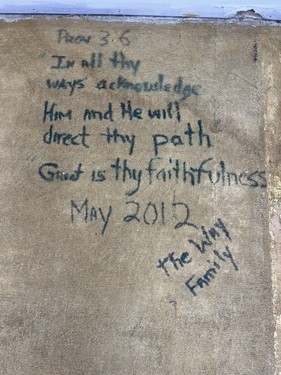 Prov 3.6
"In all thy
ways acknowledge
Him and He will
direct thy path"
"Great is thy faithfulness
May 2012
the Way
Family